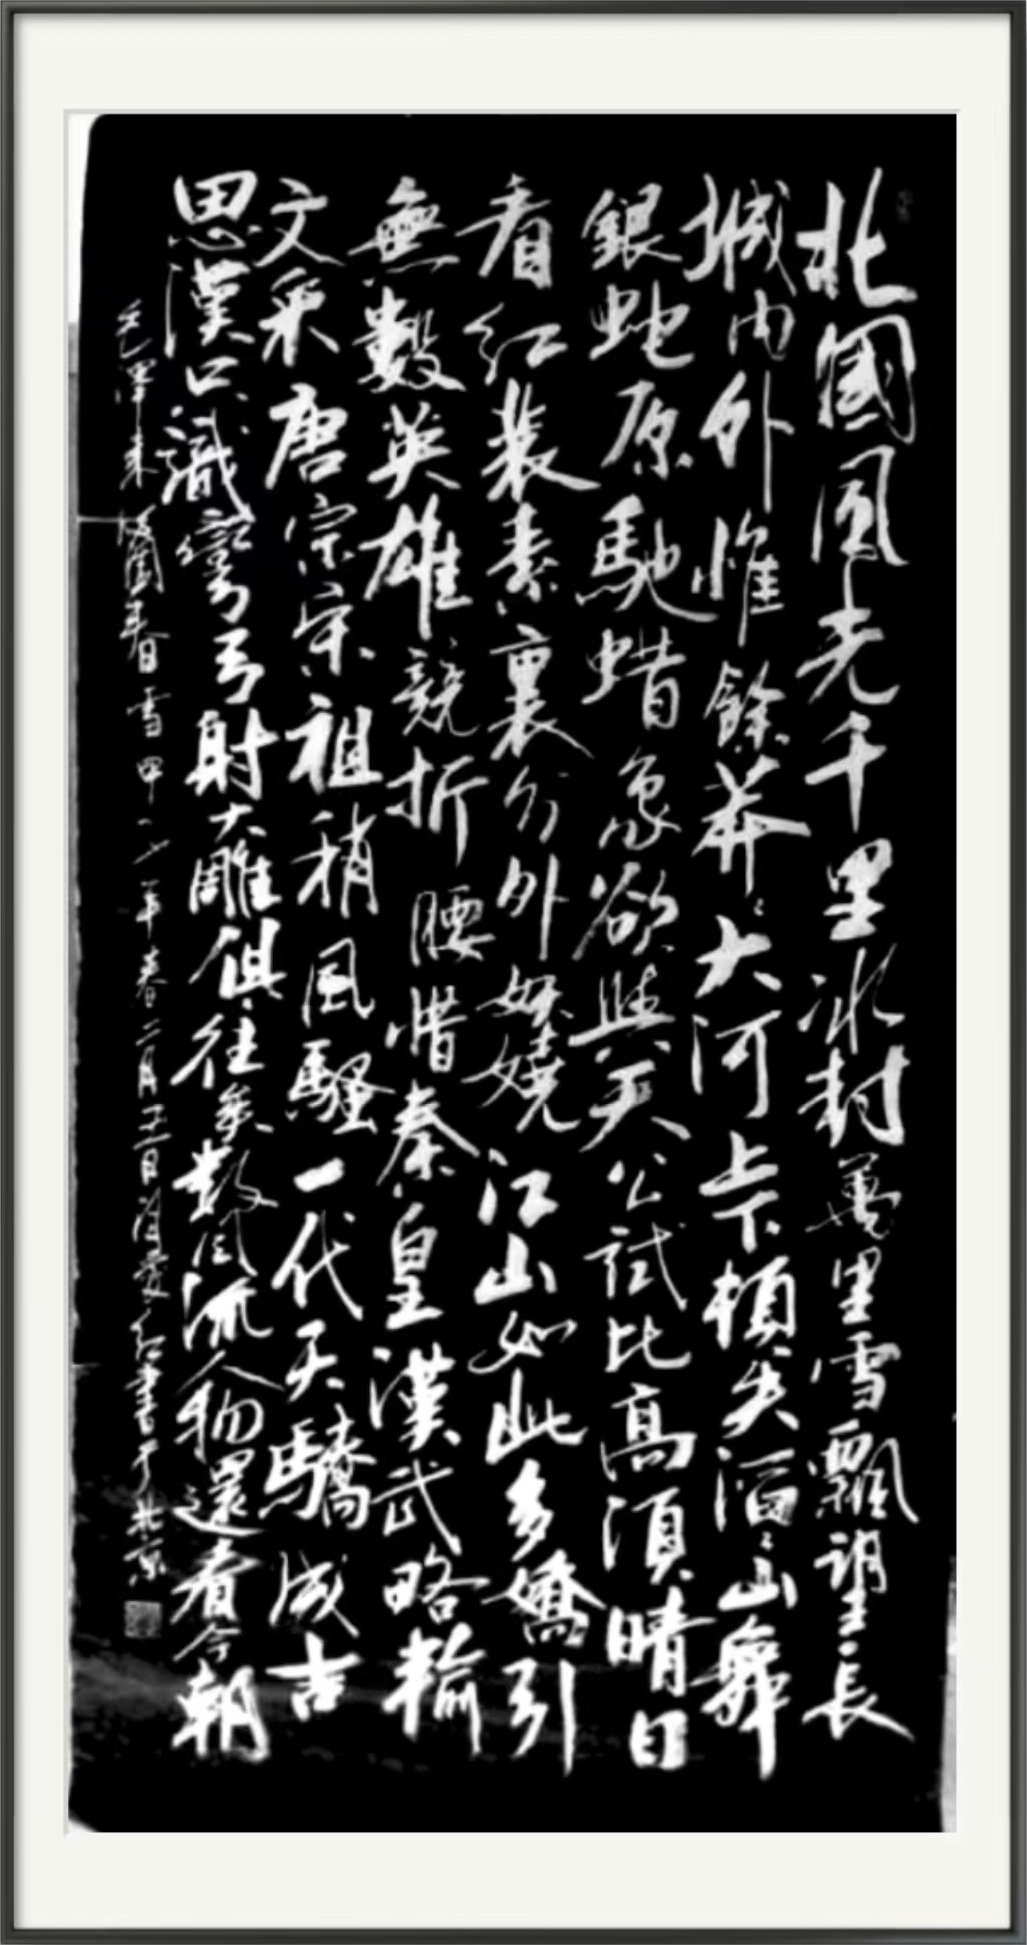 北國風光千里冰封萬里雪飄望長
城内外惟餘莽〻大河上下頓失滔〻山舞
銀蛇原馳蜡象欲與天公試比高須晴日
看紅裝素裹分外妖嬈江山如此多嬌引
無數英雄競折腰惜秦皇漢武略輸
文采唐宗宋祖稍風騷一代天驕成吉
思漢只識彎弓射大雕俱往矣數風流人物還看今朝
毛澤東沁園春雪甲年春二月日書于北京